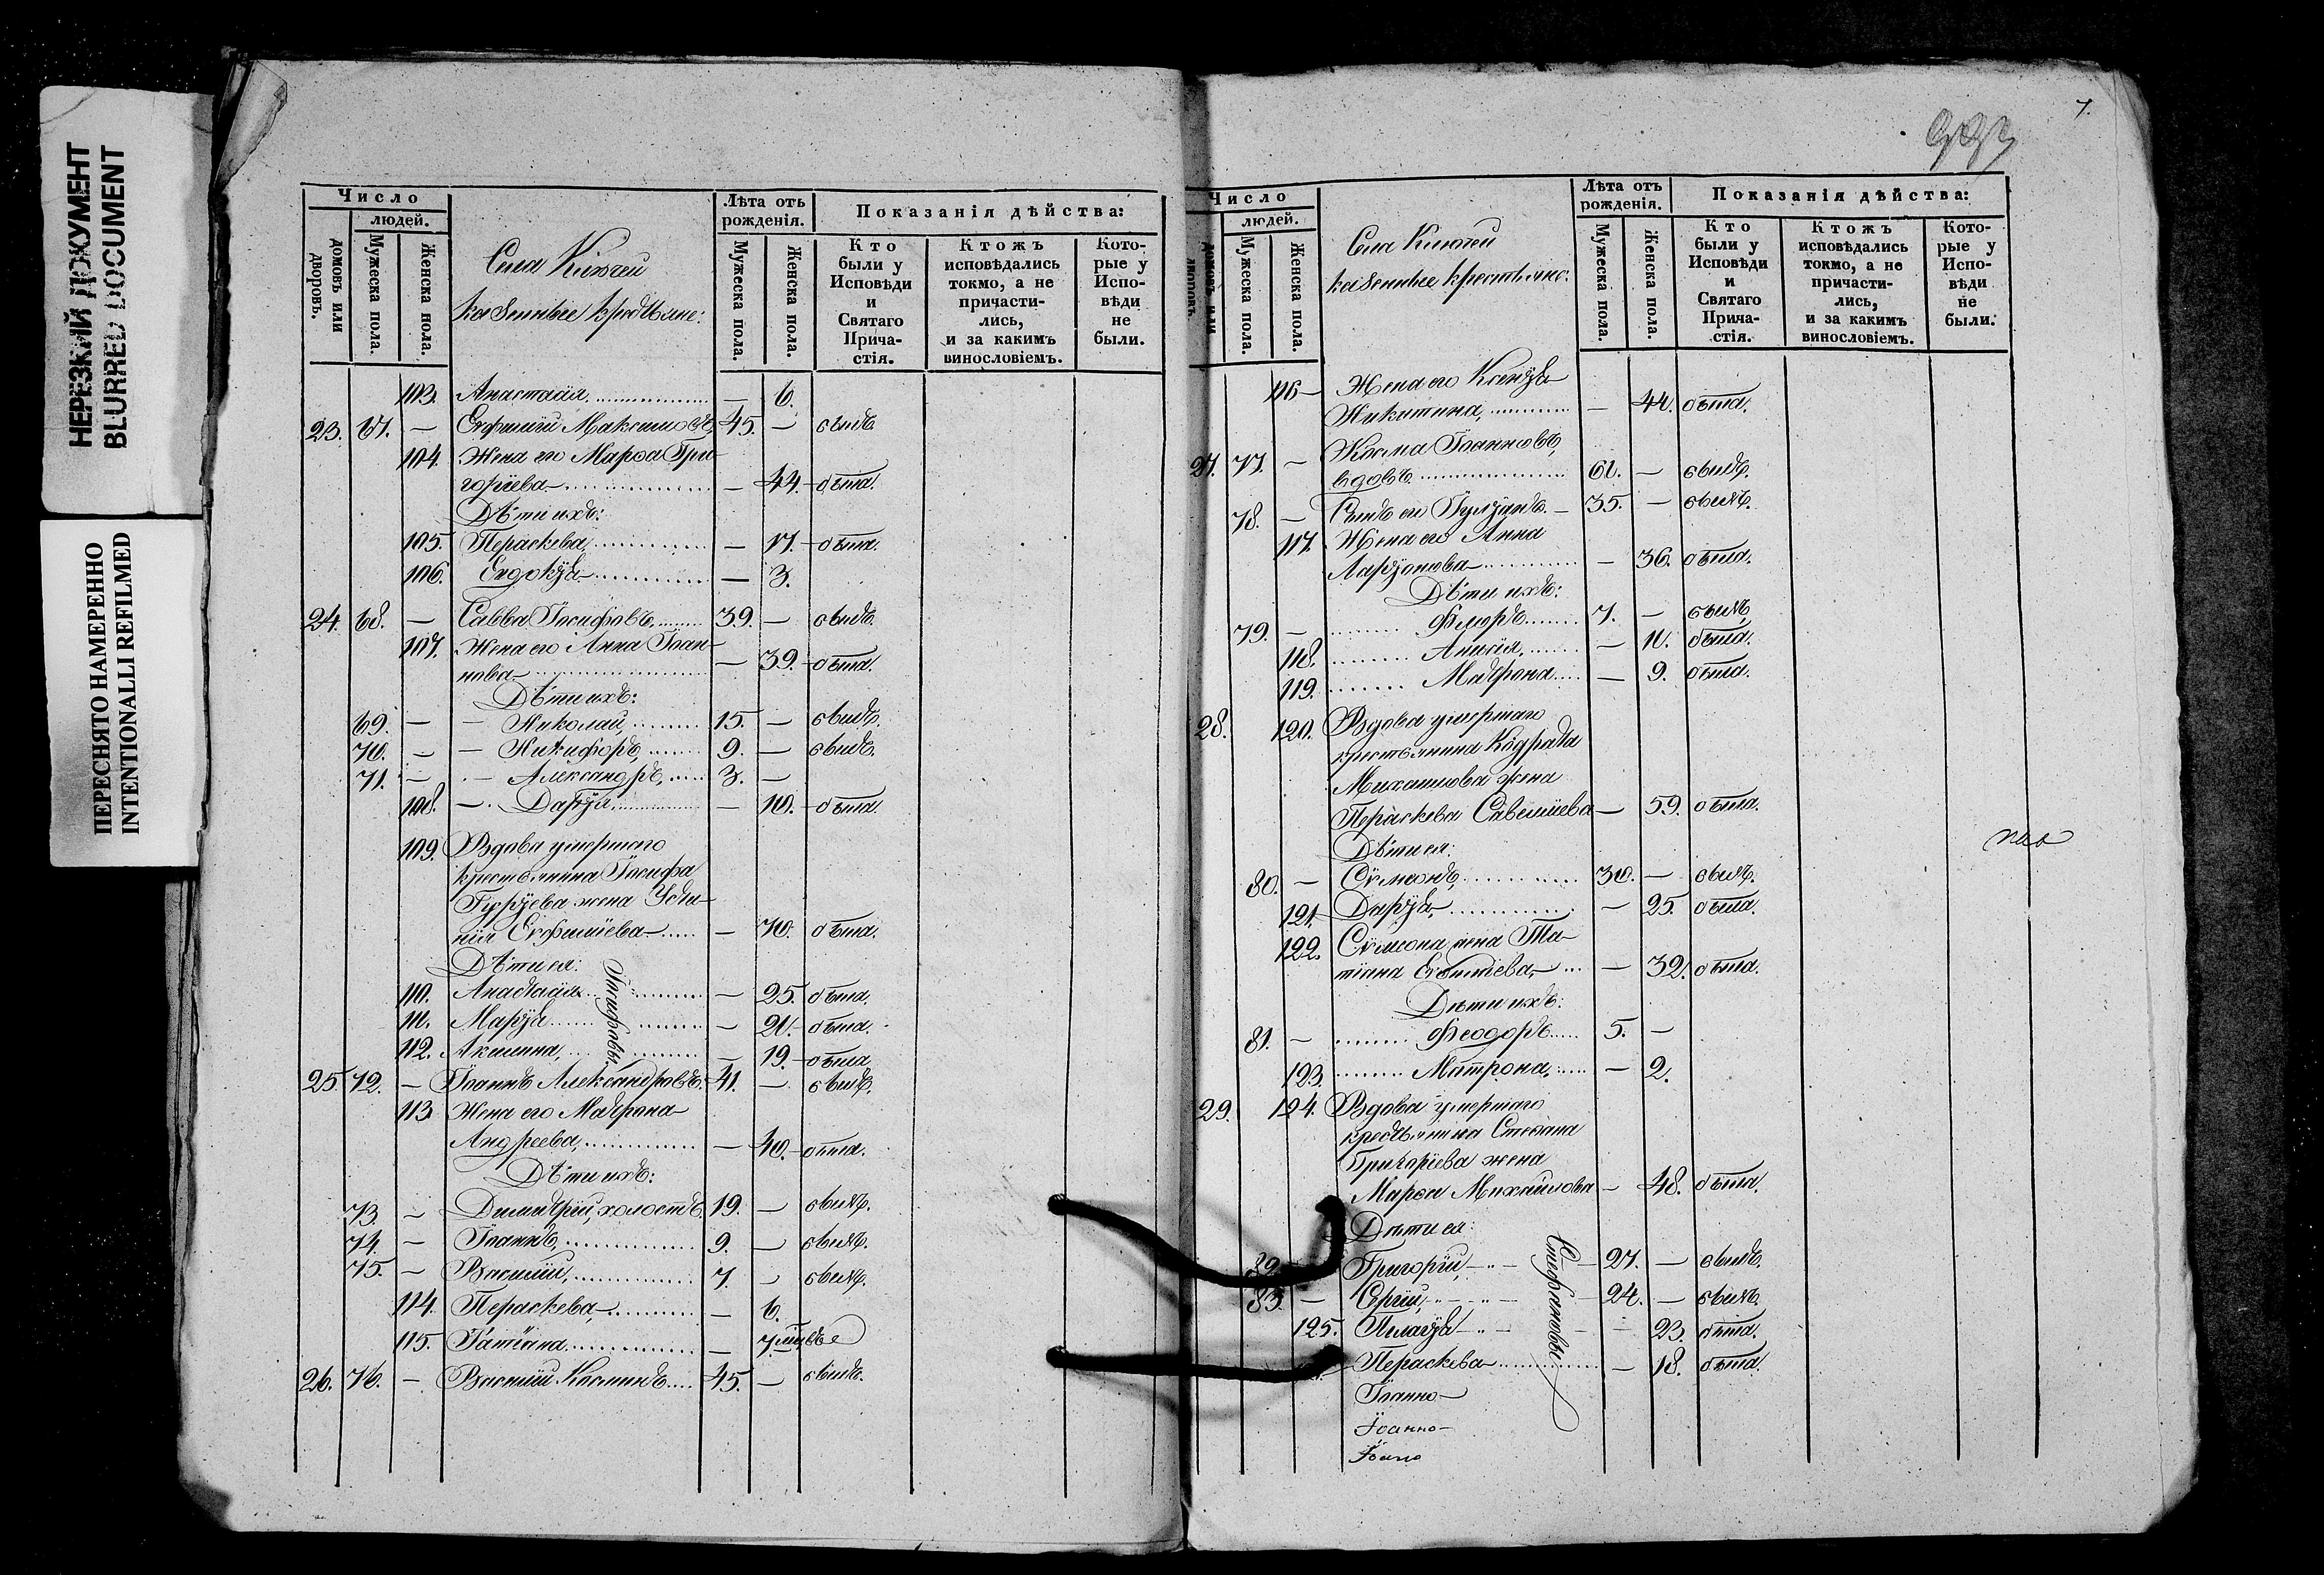 НЕРЕЗКИЙ ДОКУМЕНТ
BLURRED DOCUMENT
ПЕРЕСНЯТО НАМЕРЕННО
INTENTIONALLI REFILMED
Число
людей.
домовъ или дворовъ.
Мужеска пола.
Женска пола.
Села Ключей
казенные крестьяне:
Лѣта отъ рожденія.
Мужеска пола.
Женска пола.
Показанія дѣйства:
Кто были у Исповѣди и Святаго Прича-стія.
Ктожъ исповѣдались токмо, а не причасти-лись, и за какимъ винословіемъ.
Кото-рые у Испо-вѣди не были.
103. Анастасія — 6.
23. 67. — Евфимій Максимовъ, 45. — былъ.
104. Жена его Марѳа Гри-
горіева — 44. была.
Дѣти ихъ:
105. Параскева, — 17. была.
106. Евдокія — 3.
24. 68. — Савва Іосифовъ 39. — былъ.
107. Жена его Анна Іоан-
нова — 39. была.
Дѣти ихъ:
69. — — Николай, 15. — былъ.
70. — — Никифоръ, 9. — былъ.
71. — — Александръ, 3. —
108. — Дарія — 10. была.
109. Вдова умершаго
крестьянина Іосифа
Гурiева жена Усти-
нія Евфиміева — 70. была.
Дѣти ея:
110. Анастасія — 25. была.
111. Марія — 21. была.
112. Акилина, — 19. была.
Іосифовы
25. 72. — Іоаннъ Александровъ. 41. — былъ.
113. Жена его Матрона
Андреева, — 40. была.
Дѣти ихъ:
73. — Димитрій, холостъ. 19. — былъ.
74. — Іоаннъ, 9. — былъ.
75. — Василій, 7. — былъ.
114. Параскева, — 6.
115. Татіана —
26. 76. — Василій Косминъ 45. — былъ.
7.
Число
людей.
домовъ или дворовъ.
Мужеска пола.
Женска пола.
Села Ключей
казенные крестьяне:
Лѣта отъ рожденія.
Мужеска пола.
Женска пола.
Показанія дѣйства:
Кто были у Исповѣди и Святаго Прича-стія.
Ктожъ исповѣдались токмо, а не причасти-лись, и за какимъ винословіемъ.
Кото-рые у Испо-вѣди не были.
116 — Жена его Ксенія
Никитина, — 44. была.
27. 77. — Косма Іоанновъ,
вдовъ 61. — былъ.
78. — Сынъ его Іуліанъ. — 35. — былъ.
117. Жена его Анна
Ларіонова — 36. была.
Дѣти ихъ:
79. — Флоръ 7. — былъ.
118. Анисія, — 10. была.
119. Матрона — 9. была.
28. 120. Вдова умершаго
крестьянина Кодрата
Михаилова жена
Параскева Савеліева — 59. была.
Дѣти ея:
80. — Сѵмеонъ, 30. — былъ.
121. Дарія, — 25. была.
122. Сѵмеона жена Та-
тіана — 32. была.
Дѣти ихъ:
81. — Феодоръ 5. —
123. Матрона, — 2.
29. 124. Вдова умершаго
крестьянина Стефана
Григоріева жена
Марѳа Михайлова — 48. была.
Дѣти ея:
82. Григорій, 27. — былъ.
83. — Сергій, 24. — былъ.
125. Пелагія — 23. была.
Параскева — 18. была.
Стефановы
Іоанно
Іоанно
Іоано